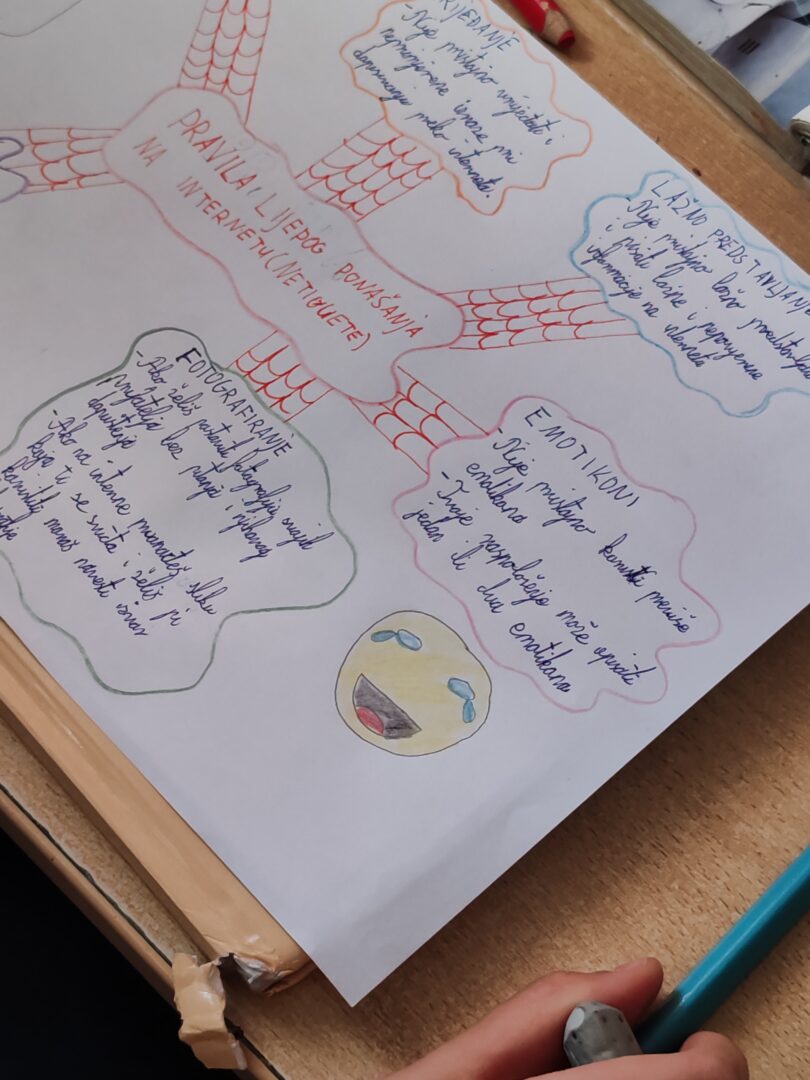 PRAVILA LIJEPOG PONAŠANJA
NA INTERNETU (NETIQUETE)
RIJEĐANJE
- Nije pristojno vrijeđati i
neprimjerene izraze pri
dopisivanju preko interneta.
LAŽNO PREDSTAVLJANJE
- Nije pristojno lažno predstavljati
i pisati lažne i neprovjerene
informacije na internetu
FOTOGRAFIRANJE
- Ako želiš postaviti fotografiju svojih
prijatelja bez pitanja i njihovog
dopuštenja
- Ako na internetu pronađeš sliku
koja ti se sviđa i želiš ju
koristiti moraš navesti izvor
EMOTIKONI
- Nije pristojno koristiti previše
emotikona
- Tvoje raspoloženje može opisati
jedan ili dva emotikona